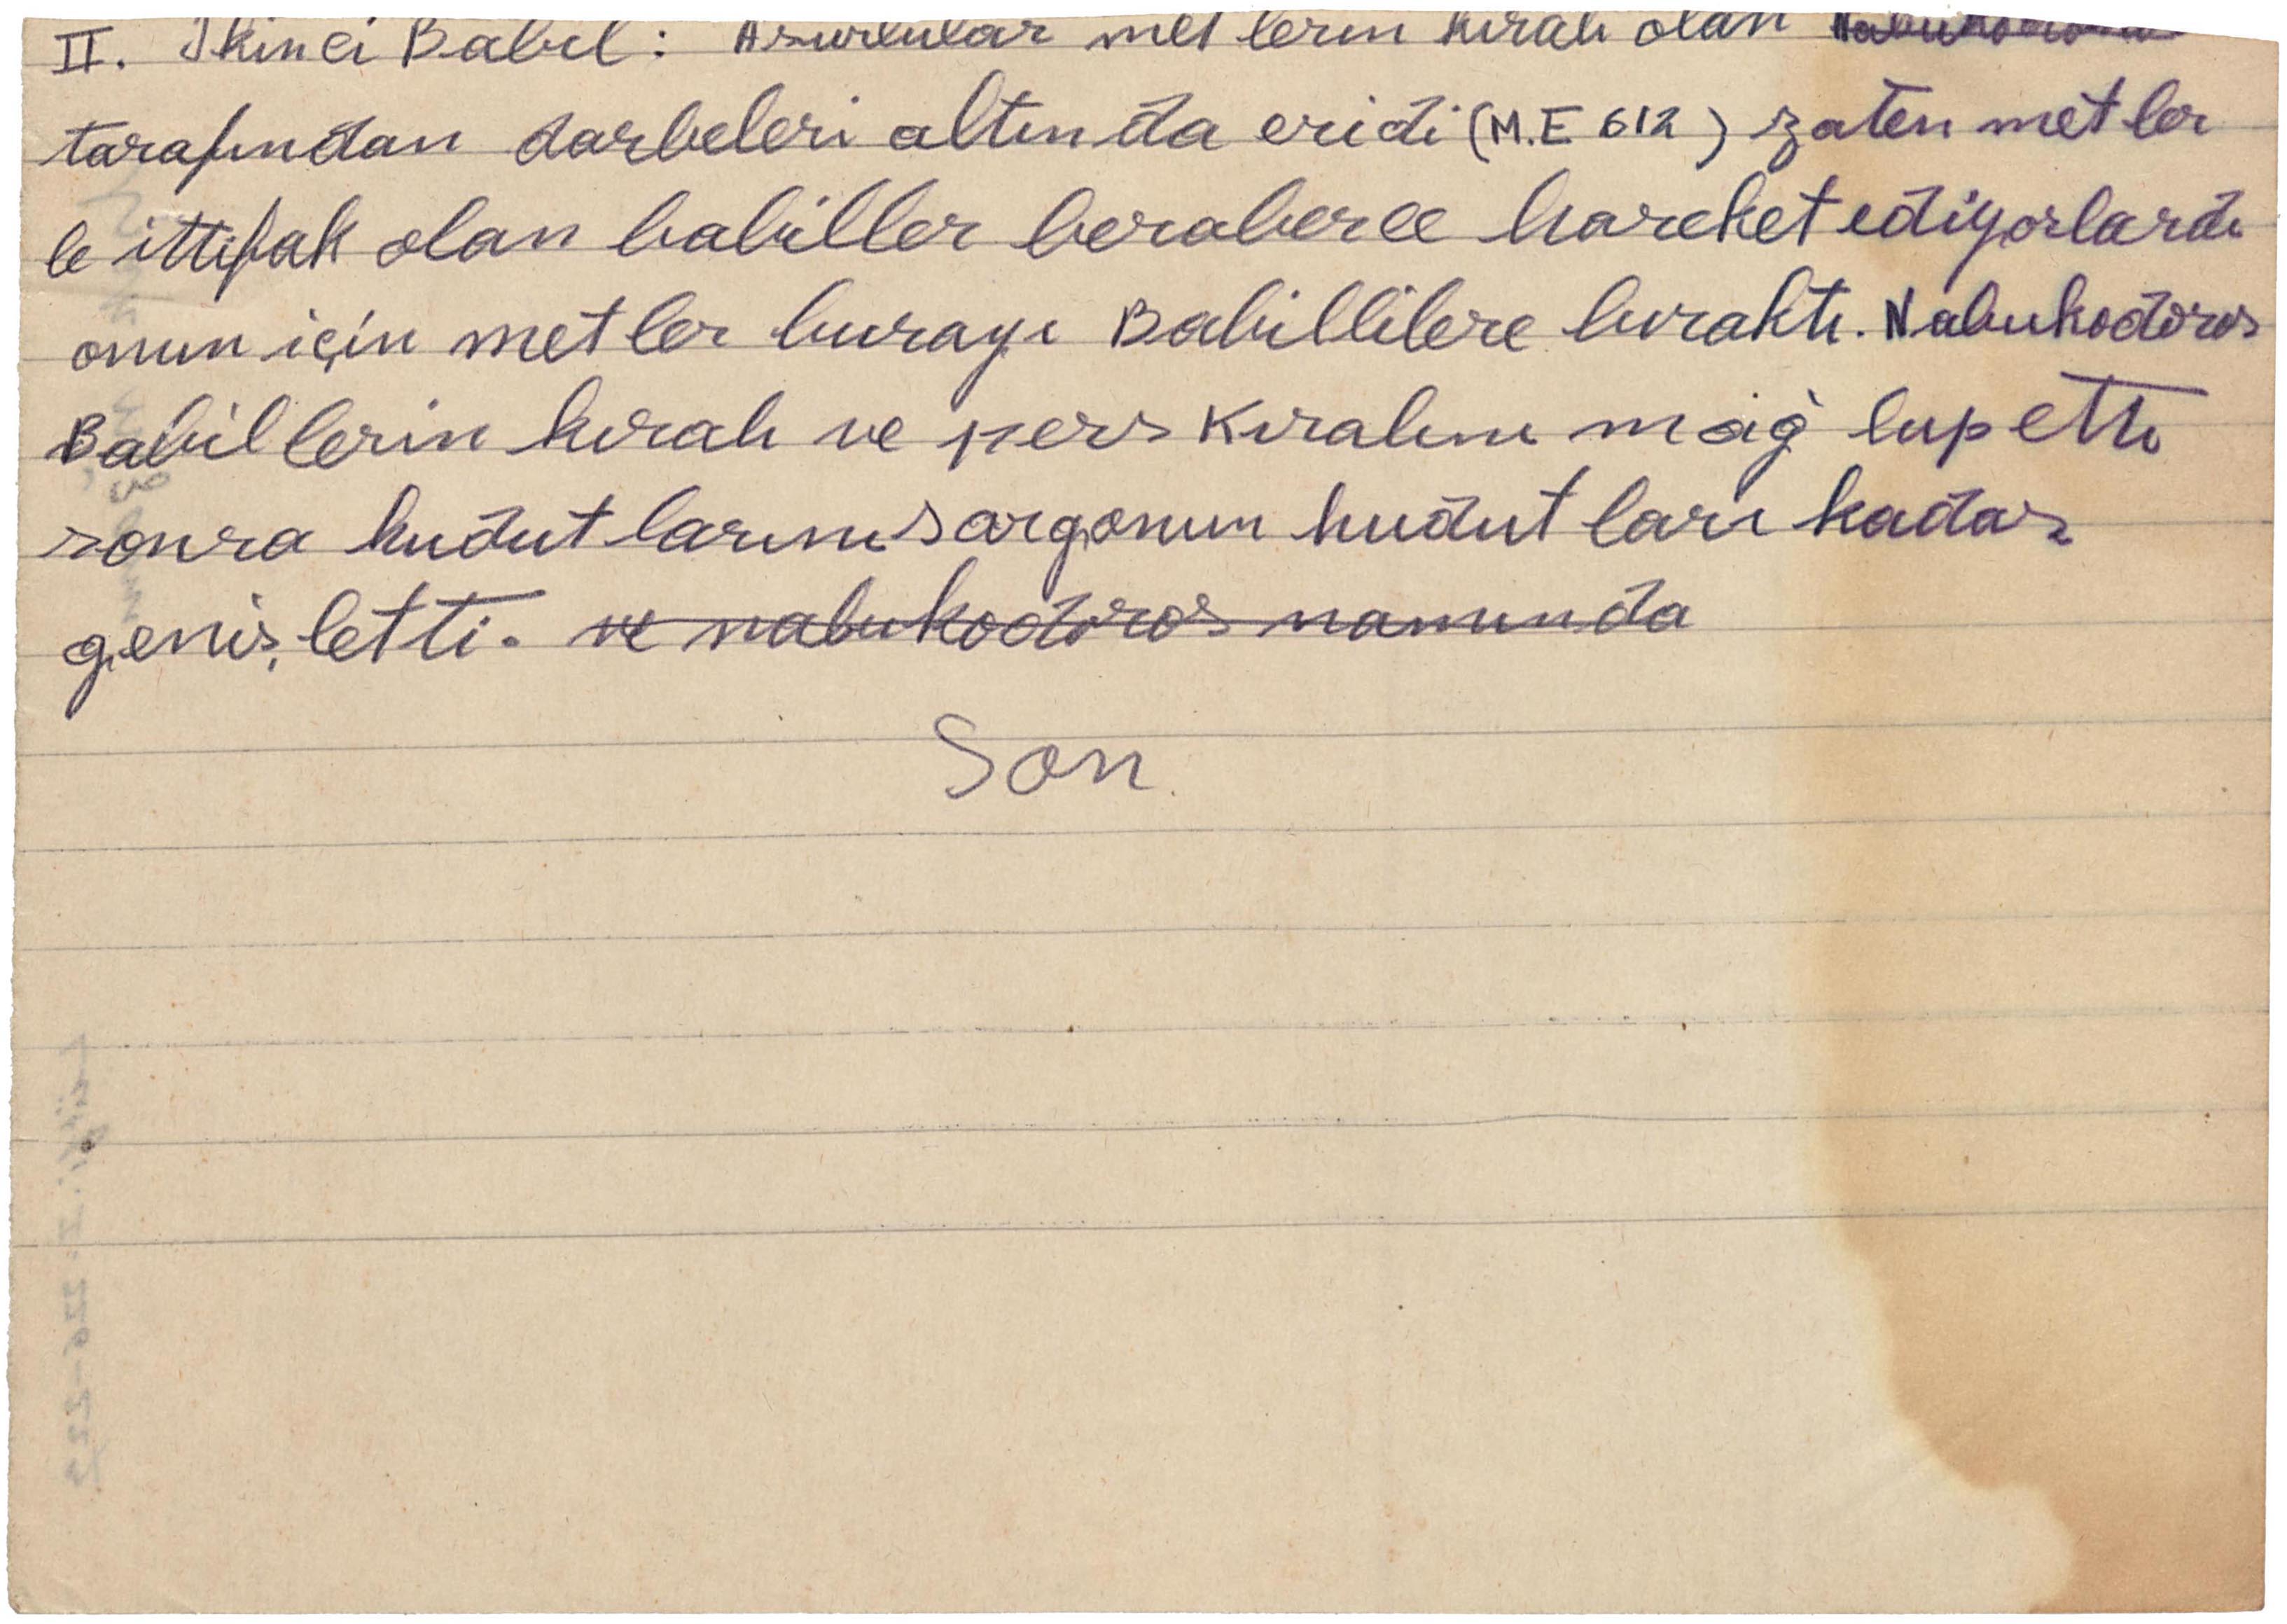 II. İkinci Babil: Asurlular metlerin kıralı olan
tarafından darbeleri altında eridi (M.E 612) zaten metler
le ittifak olan babiller beraberce hareket ediyorlardı
onun için metler burayı Babillilere bıraktı. Nabukodoros
Babillerin kıralı ve pers Kıralını mağlup etti
sonra hudutlarını sargonun hudutları kadar
genişletti. ve nabukodoros namında
Son